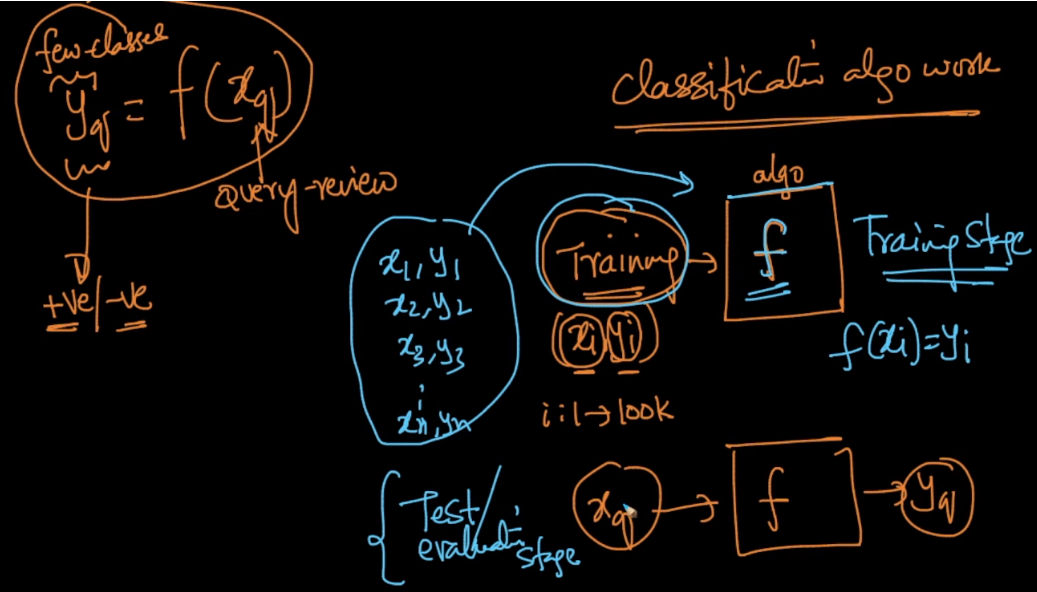 few-classes
yq = f(xq)
query-review
+ve/-ve
classificatin algo work
algo
x1, y1
x2, y2
x3, y3
xn, yn
Training
f
Training Stage
(xi, yi)
i:1→100K
f(xi)=yi
Test/
evaluatin
stage
xq → f → yq